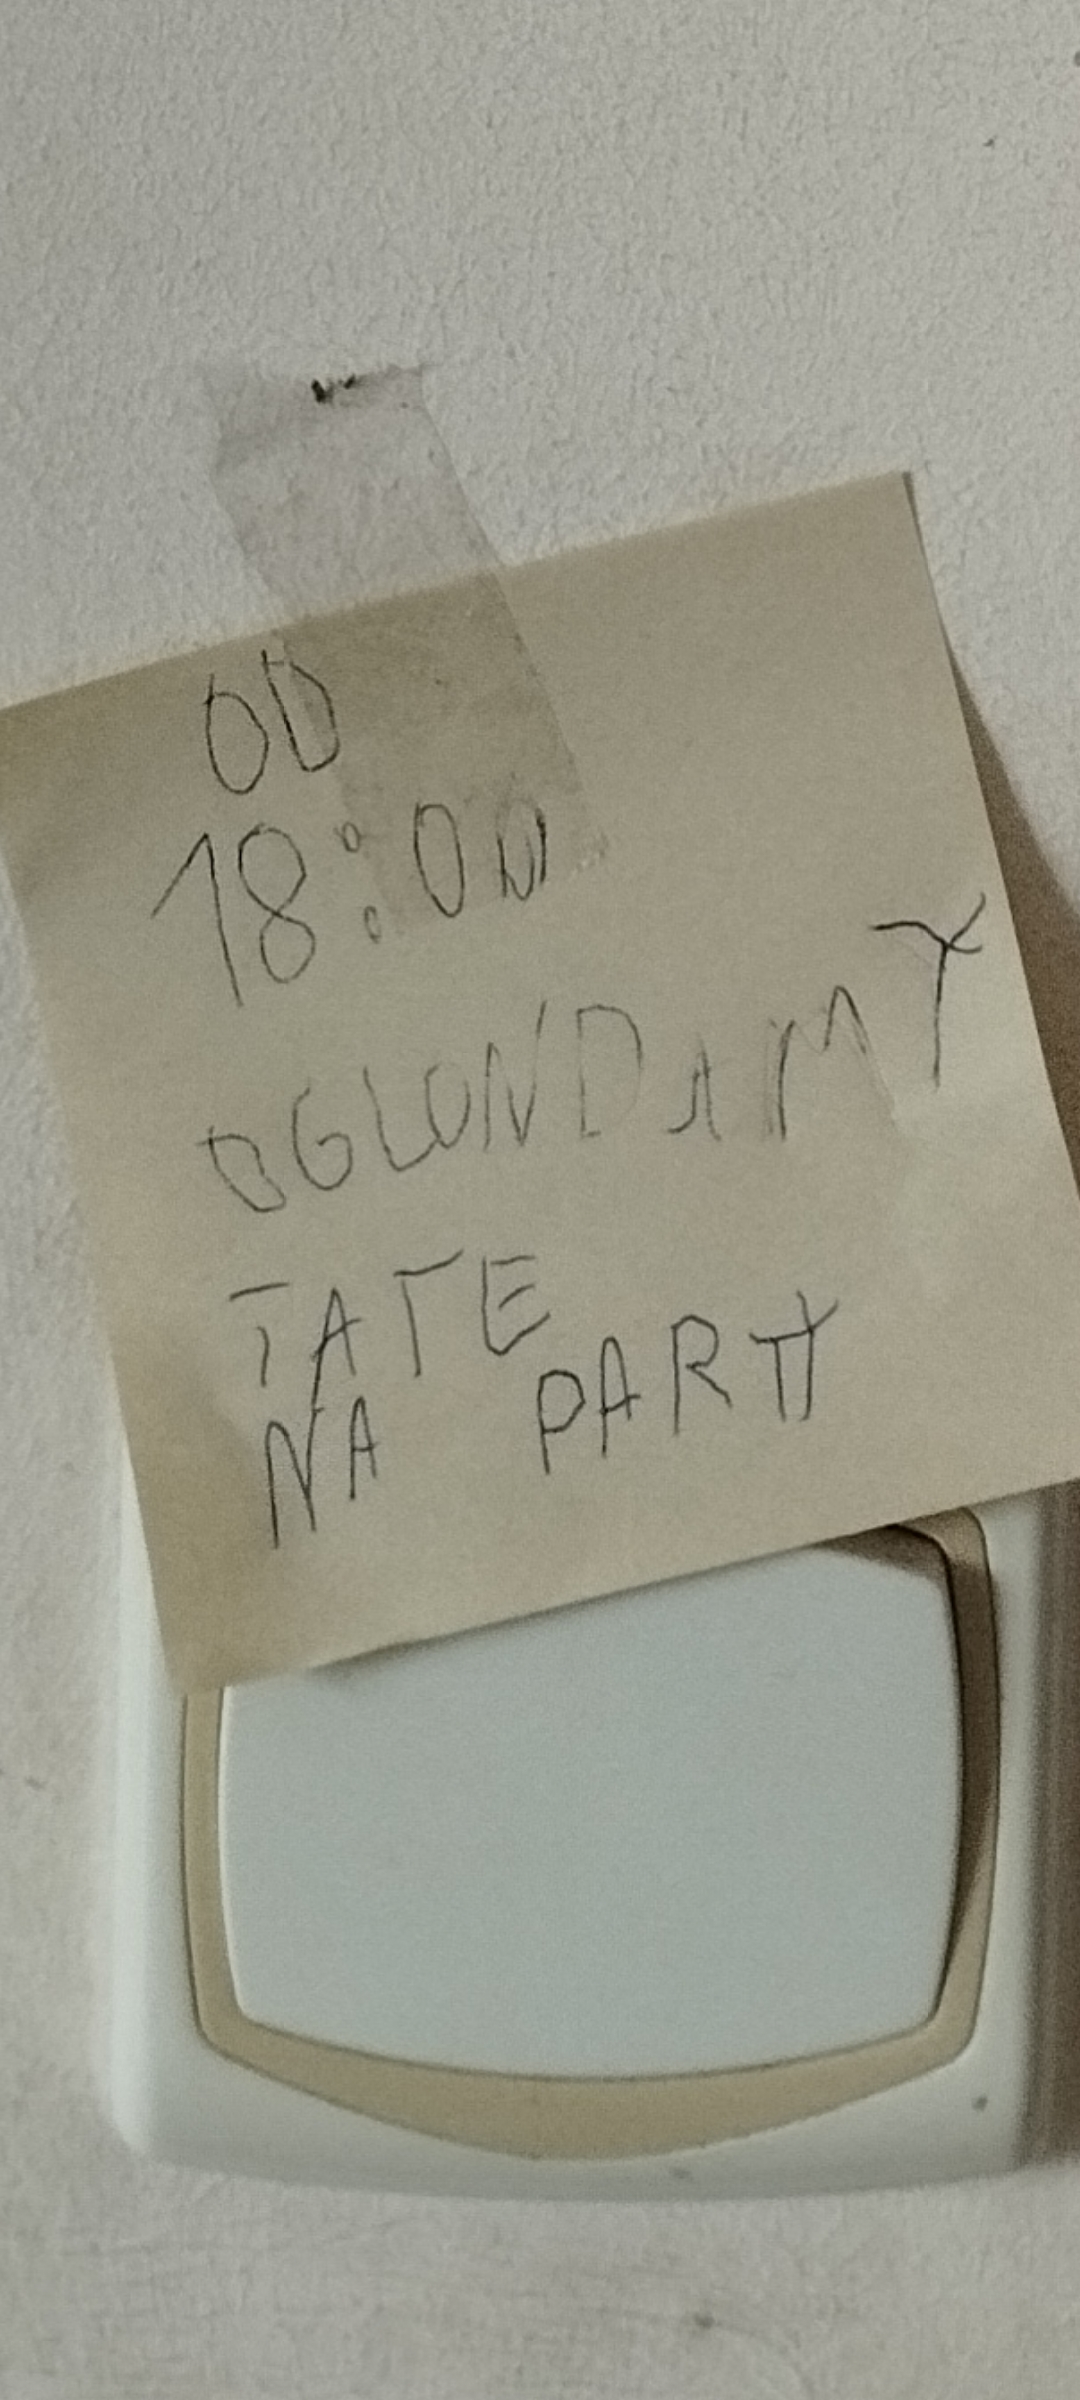 OD
18:00
OGLONDAMY
TATE
NA PARTY